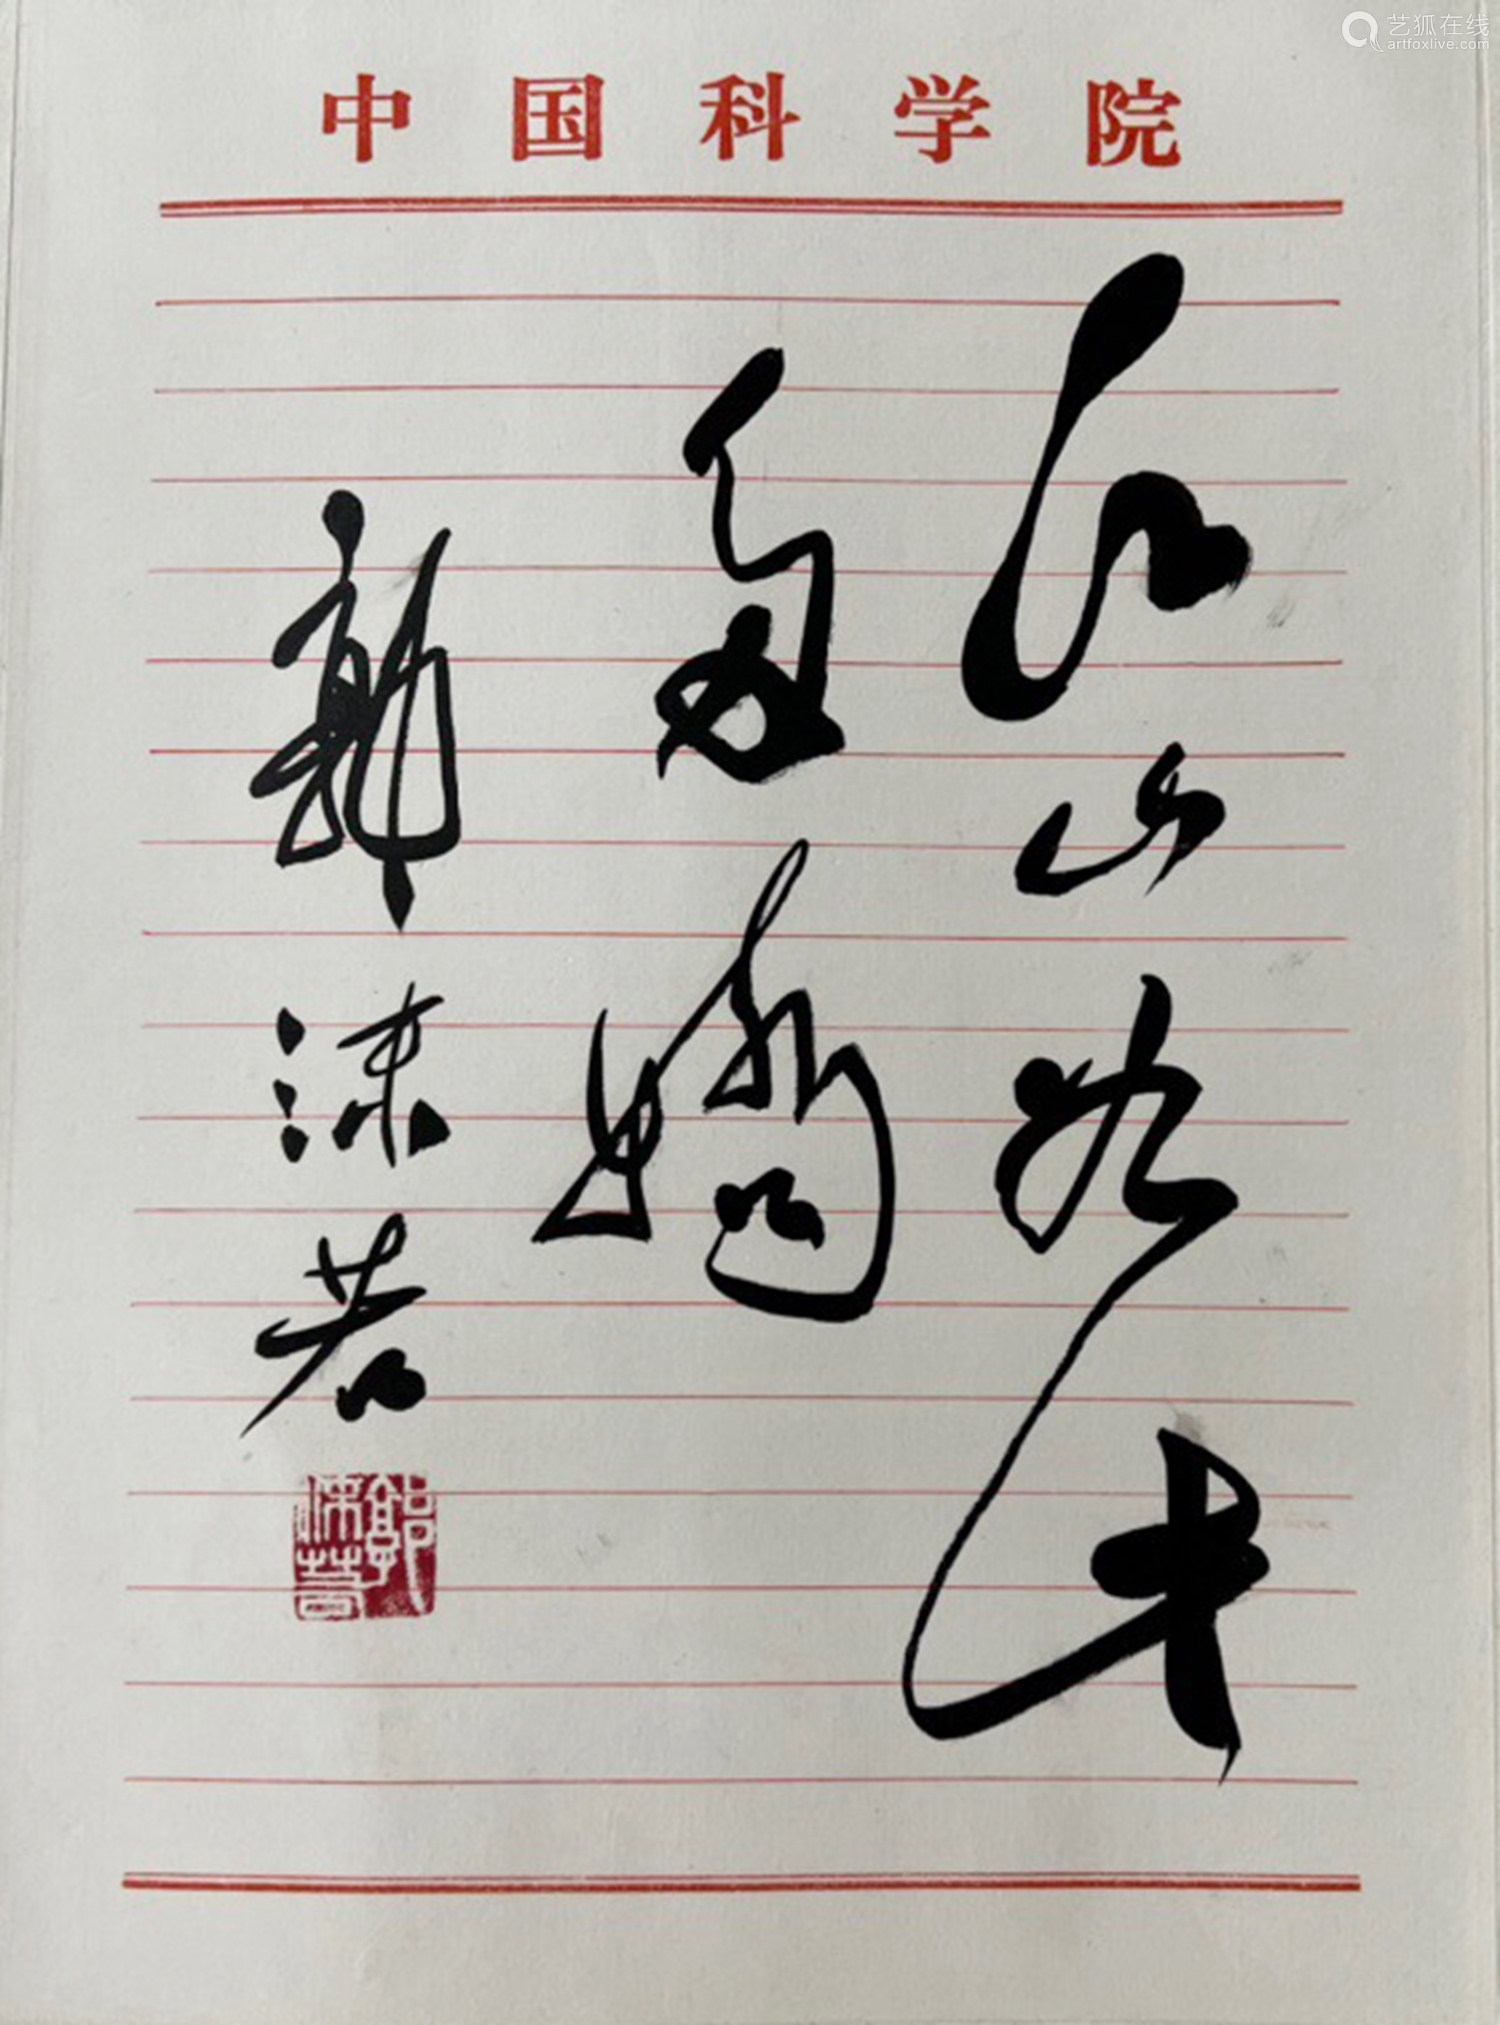 艺狐在线
artfoxlive.com
中国科学院
江山如此
多娇
郭沫若
郭沫若